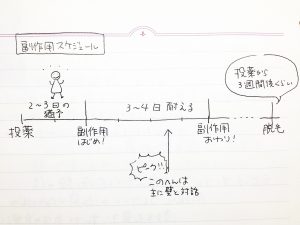 副作用スケジュール
投薬から
3週間後くらい
2～3日の
猶予
3～4日耐える
投薬
副作用
はじめ!
副作用
おわり!
脱毛
ピーク!!
このへんは
主に壁と対話